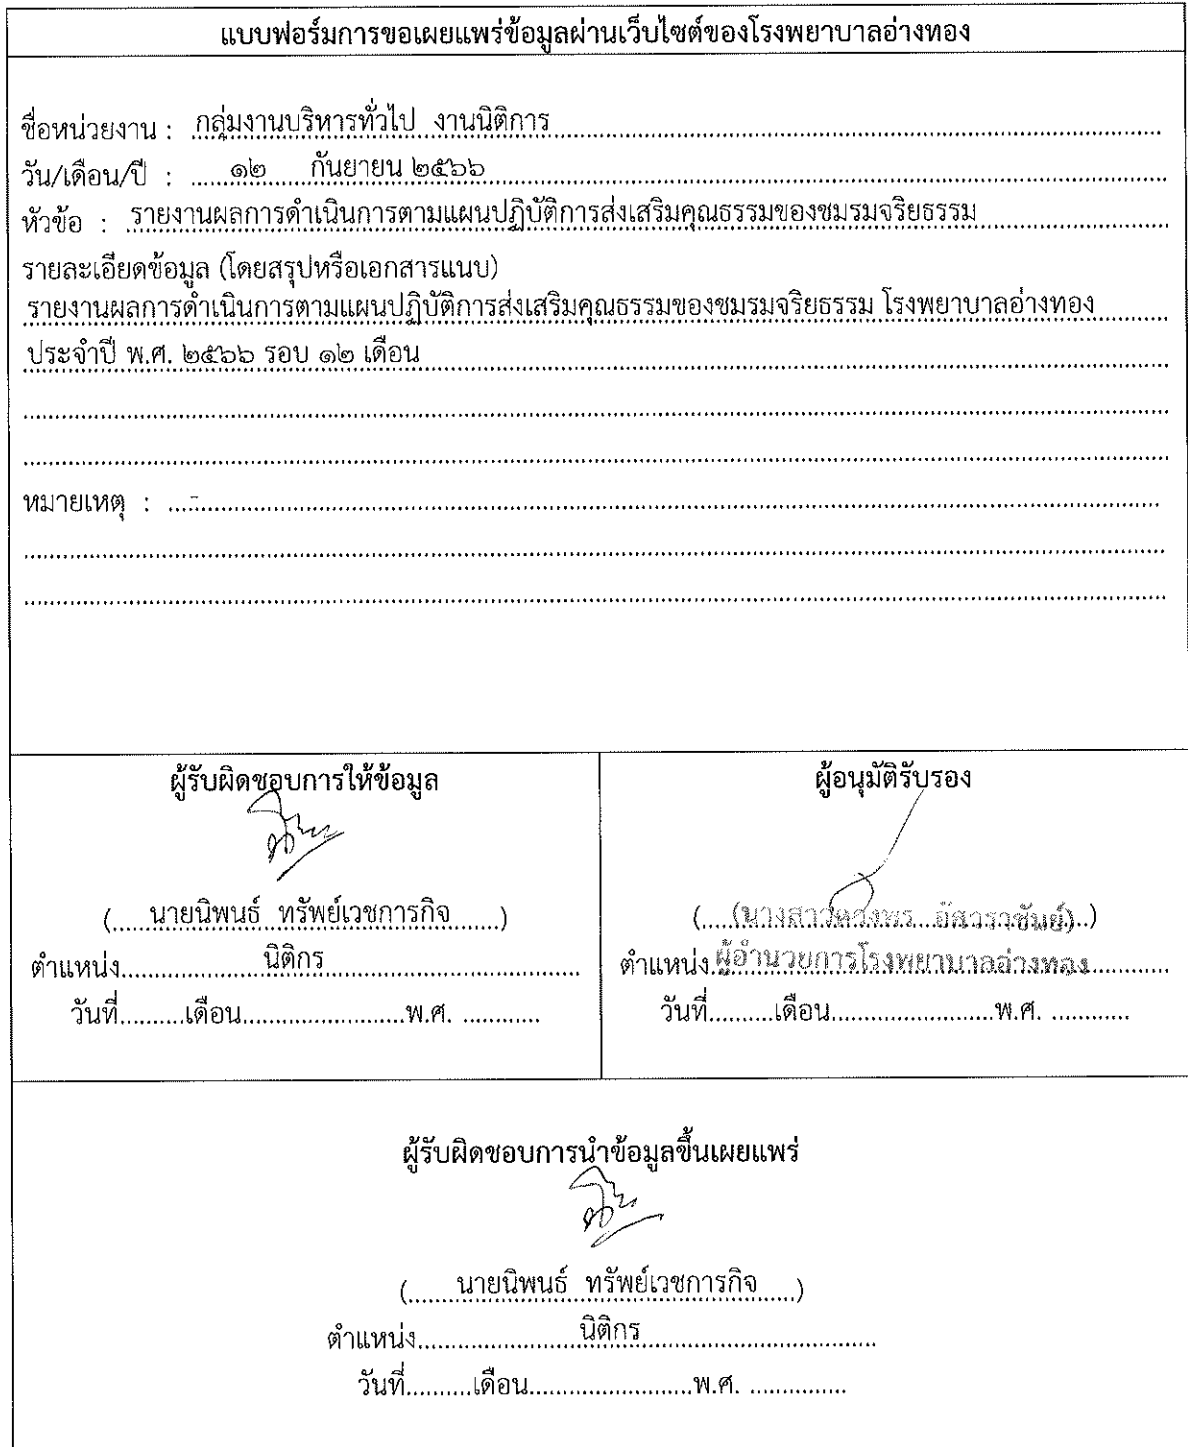 แบบฟอร์มการขอเผยแพร่ข้อมูลผ่านเว็บไซต์ของโรงพยาบาลอ่างทอง
ชื่อหน่วยงาน : กลุ่มงานบริหารทั่วไป งานนิติการ
วัน/เดือน/ปี : ๑๒ กันยายน ๒๕๖๖
หัวข้อ : รายงานผลการดำเนินการตามแผนปฏิบัติการส่งเสริมคุณธรรมของชมรมจริยธรรม
รายละเอียดข้อมูล (โดยสรุปหรือเอกสารแนบ)
รายงานผลการดำเนินการตามแผนปฏิบัติการส่งเสริมคุณธรรมของชมรมจริยธรรม โรงพยาบาลอ่างทอง
ประจำปี พ.ศ. ๒๕๖๖ รอบ ๑๒ เดือน
หมายเหตุ : -
ผู้รับผิดชอบการให้ข้อมูล
(นายนิพนธ์ ทรัพย์เวชการกิจ)
ตำแหน่ง นิติกร
วันที่..........เดือน.........................พ.ศ. ............
ผู้อนุมัติรับรอง
(นางสาว อัศวราชันย์)
ตำแหน่ง ผู้อำนวยการโรงพยาบาลอ่างทอง
วันที่..........เดือน.........................พ.ศ. ............
ผู้รับผิดชอบการนำข้อมูลขึ้นเผยแพร่
(นายนิพนธ์ ทรัพย์เวชการกิจ)
ตำแหน่ง นิติกร
วันที่..........เดือน.........................พ.ศ. ...............